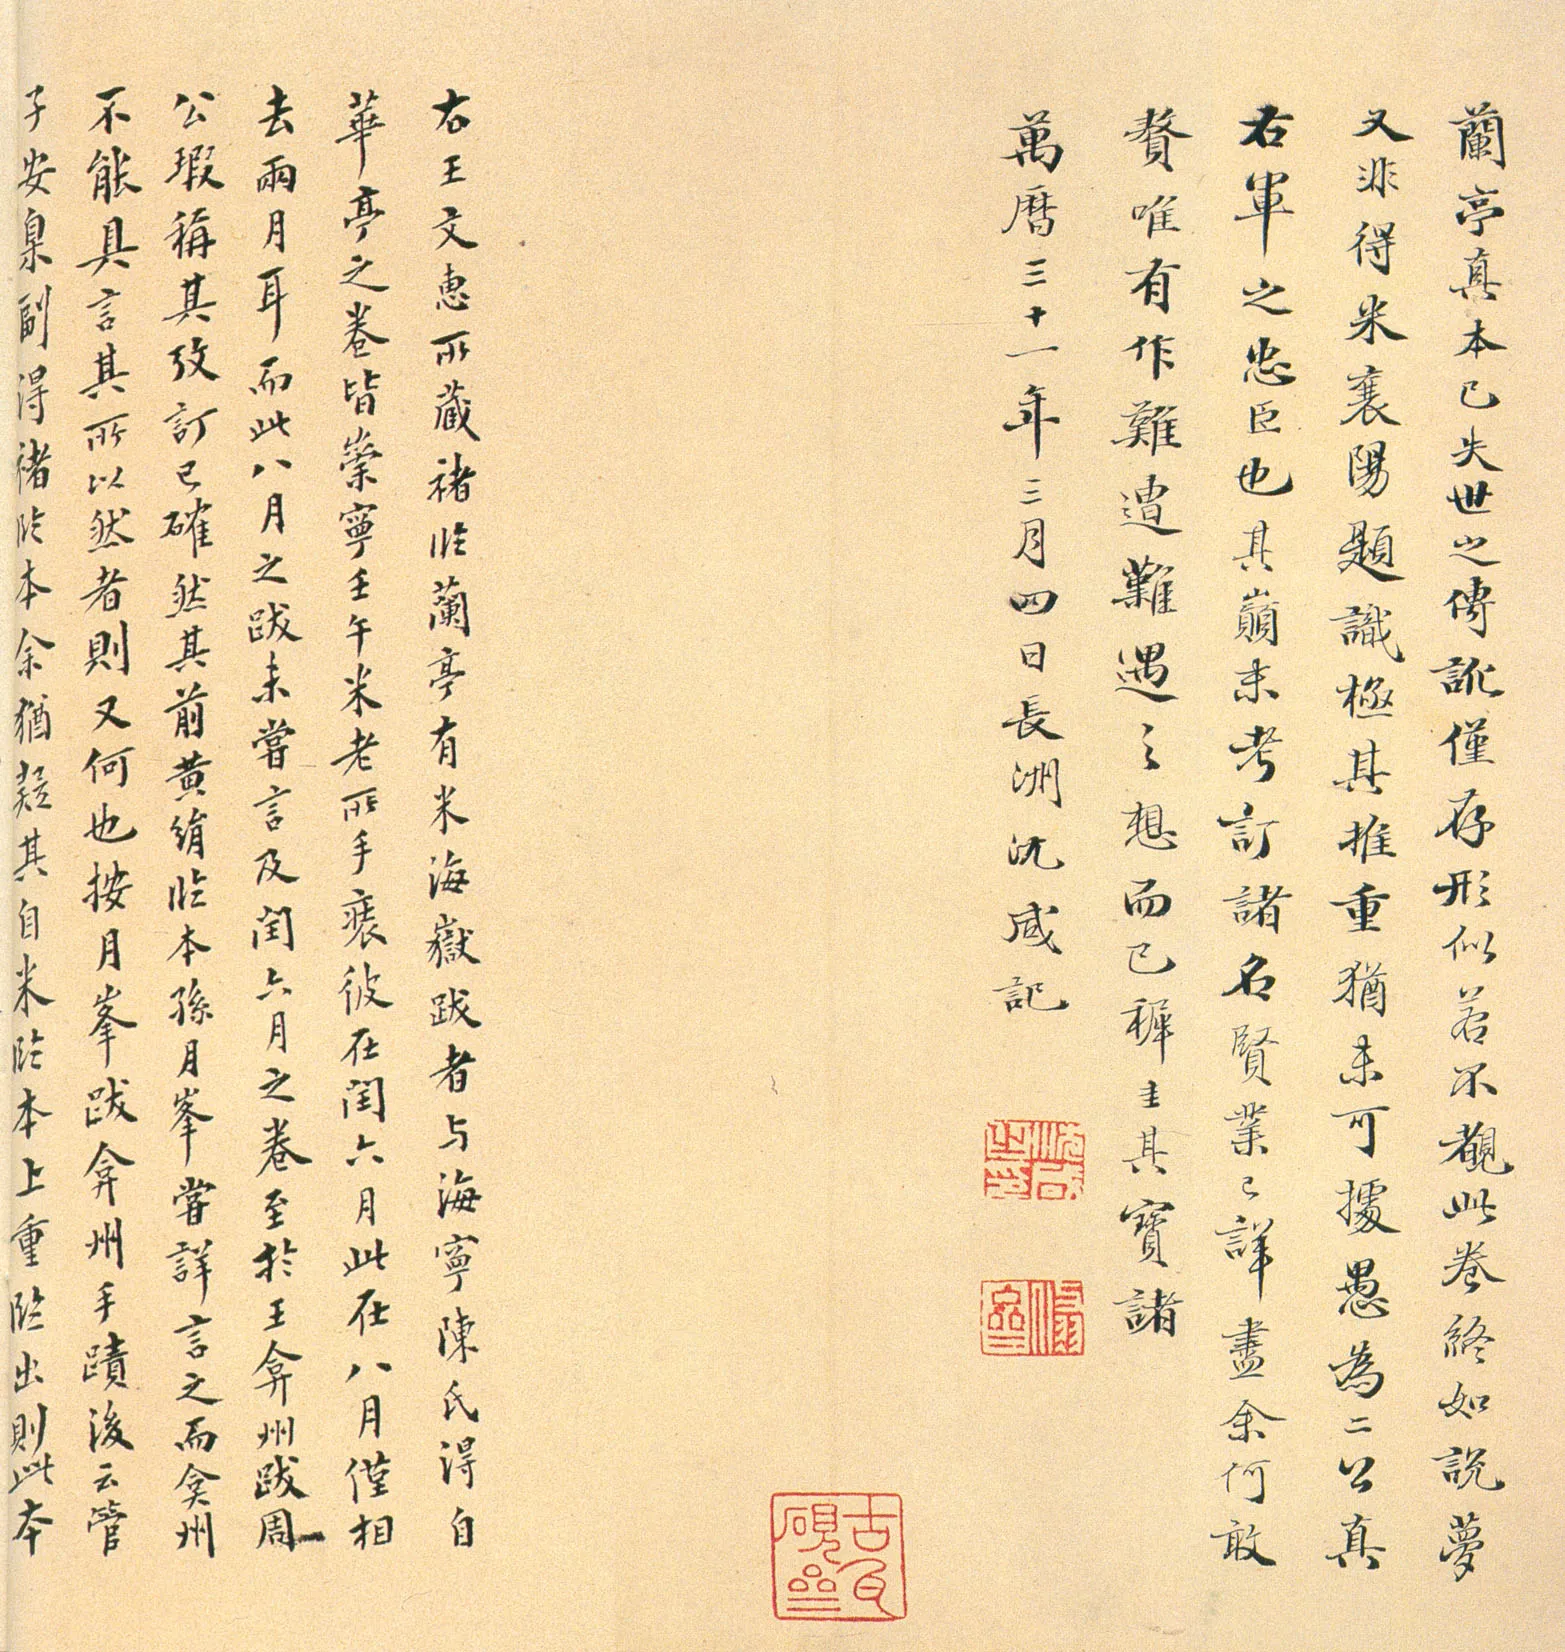 蘭亭真本已失世之傳訛僅存形似若不觀此卷終如說夢
又非得米襄陽題識極其推重猶未可據愚為二公真
右軍之忠臣也其巔末考訂諸名賢業已詳盡余何敢
贅唯有作難遭難遇之想而已穉圭其寶諸
萬曆三十一年三月四日長洲沈咸記
古瓦硯齋
右王文惠所藏褚臨蘭亭有米海嶽跋者与海寧陳氏得自
華亭之卷皆崇寧壬午米老所手裝彼在閏六月此在八月僅相
去兩月耳而此八月之跋未嘗言及閏六月之卷至於王弇州跋周
公瑕稱其攷訂已確然其前黃絹臨本孫月峯嘗詳言之而弇州
不能具言其所以然者則又何也按月峯跋弇州手蹟後云管
子安臬副得褚臨本余猶疑其自米臨本上重臨出則此本